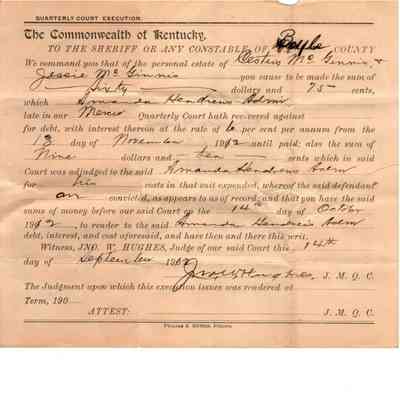 QUARTERLY COURT EXECUTION.
The Commonwealth of Kentucky,
TO THE SHERIFF OR ANY CONSTABLE OF Boyle COUNTY
We command you that of the personal estate of Mc Ginnis &
Jessie Mc Ginnis you cause to be made the sum of
Sixty dollars and 75 cents,
which Amanda Hendrens Admr
late in our Mercer Quarterly Court hath recovered against
for debt, with interest thereon at the rate of 6 per cent per annum from the
13 day of November 19 until paid; also the sum of
Nine dollars and ten cents which in said
Court was adjudged to the said Amanda Hendrens Adm
for his costs in that suit expended, whereof the said defendant
convicted, as appears to us of record; and that you have the said
sums of money before our said Court on the 14th day of Octbr
1912, to render to the said Amanda Hendrens Adm
debt, interest, and cost aforesaid, and have then and there this writ.
Witness, JNO. W. HUGHES, Judge of our said Court this 14th
day of September 190
Jno W Hughes, J. M. Q. C.
The Judgment upon which this execution issues was rendered at
Term, 190
ATTEST: J. M. Q. C.